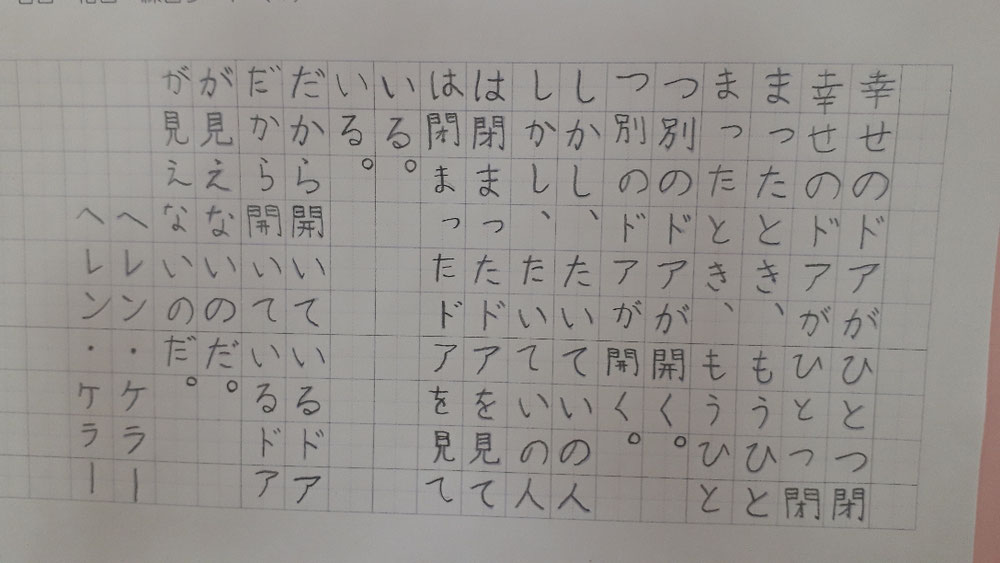 幸せのドアがひとつ閉
幸せのドアがひとつ閉
まったとき、もうひと
まったとき、もうひと
つ別のドアが開く。
つ別のドアが開く。
しかし、たいていの人
しかし、たいていの人
は閉まったドアを見て
は閉まったドアを見て
いる。
いる。
だから開いているドア
だから開いているドア
が見えないのだ。
が見えないのだ。
ヘレン・ケラー
ヘレン・ケラー